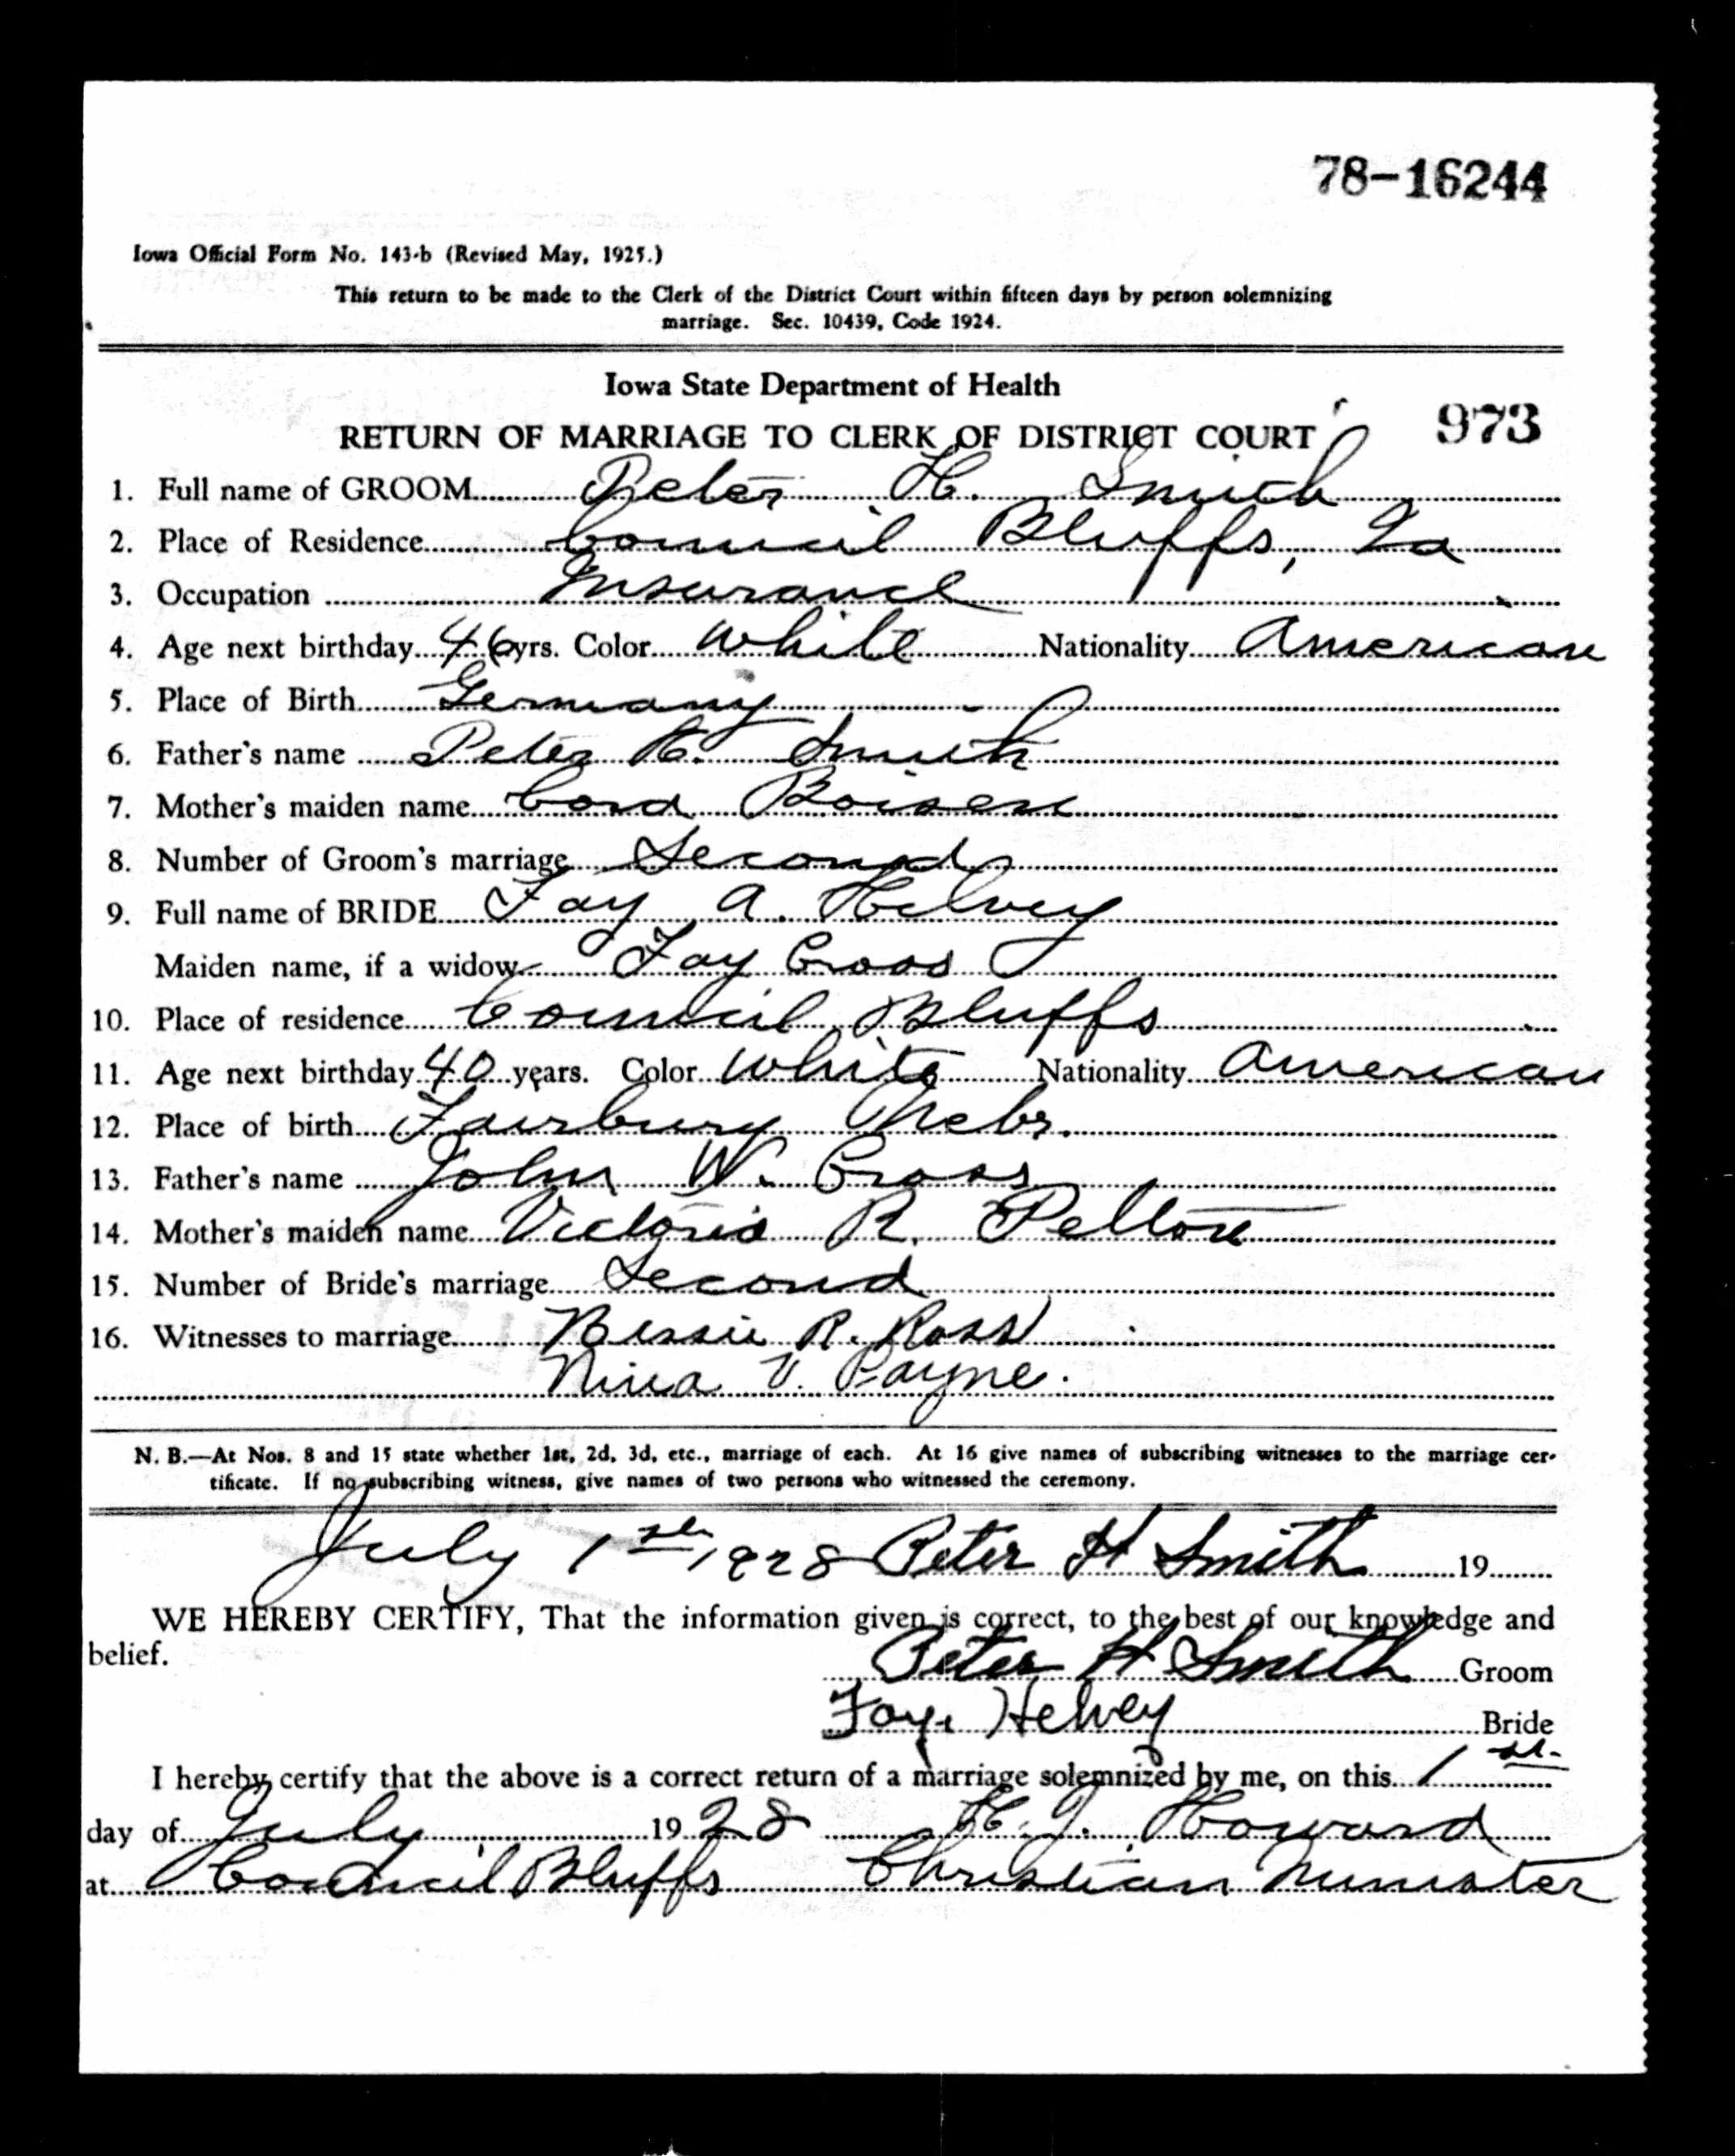 78-16244
Iowa Official Form No. 143-b (Revised May, 1925.)
This return to be made to the Clerk of the District Court within fifteen days by person solemnizing
marriage. Sec. 10439, Code 1924.
Iowa State Department of Health
973
RETURN OF MARRIAGE TO CLERK OF DISTRICT COURT
1. Full name of GROOM Peter H. Smith
2. Place of Residence Council Bluffs, Ia
3. Occupation Insurance
4. Age next birthday 46 yrs. Color White Nationality American
5. Place of Birth Germany
6. Father's name Peter H. Smith
7. Mother's maiden name Boisen
8. Number of Groom's marriage Second
9. Full name of BRIDE Fay A. Helvey
Maiden name, if a widow Fay Cross
10. Place of residence Council Bluffs
11. Age next birthday 40 years. Color White Nationality American
12. Place of birth Fairbury Nebr.
13. Father's name John W. Cross
14. Mother's maiden name Victoria R. Pelton
15. Number of Bride's marriage Second
16. Witnesses to marriage Bessie R. Ross
Nina V. Payne.
N. B.—At Nos. 8 and 15 state whether 1st, 2d, 3d, etc., marriage of each. At 16 give names of subscribing witnesses to the marriage cer-
tificate. If no subscribing witness, give names of two persons who witnessed the ceremony.
July 1st, 1928 Peter H Smith 19
WE HEREBY CERTIFY, That the information given is correct, to the best of our knowledge and
belief.
Peter H Smith Groom
Fay Helvey Bride
I hereby certify that the above is a correct return of a marriage solemnized by me, on this 1st
day of July 1928 H. J. Howard
at Council Bluffs Christian Minister